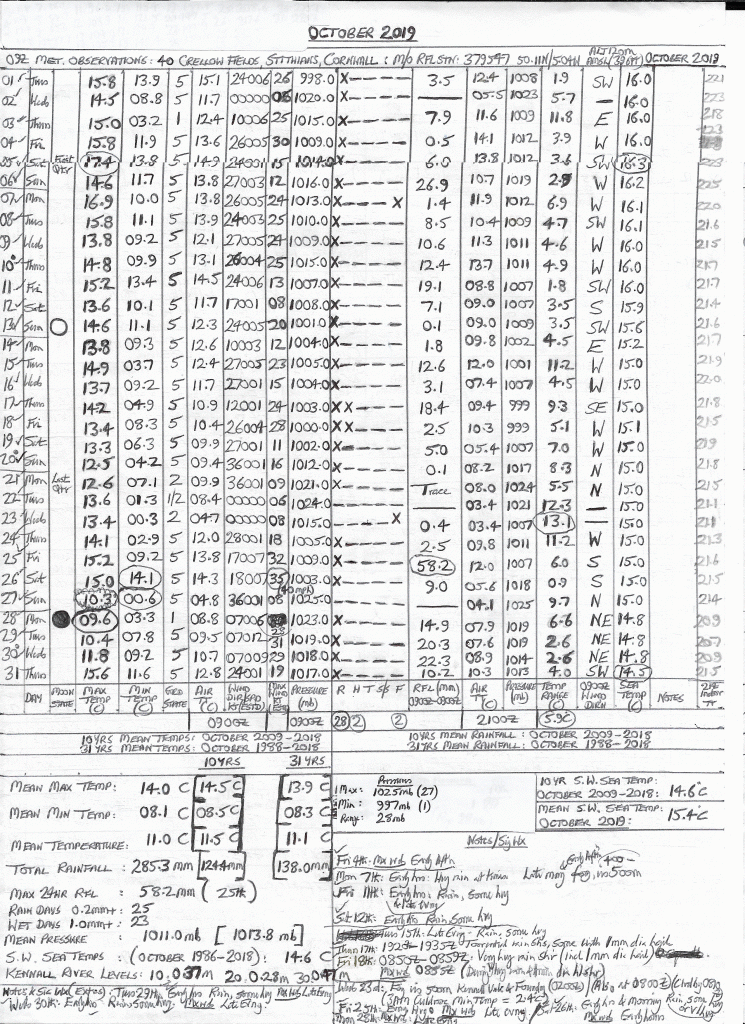 OCTOBER 2019
09Z MET. OBSERVATIONS: 40 CRELLOW FIELDS, STITHIANS, CORNWALL: M/O RFLSTN: 379547 50.11N/5.04W ALT 120m AMSL (394FT) OCTOBER 2019
01 Tues 15.8 13.9 5 15.1 24006 26 998.0 X - - - - - 3.5 12.4 1008 1.9 SW 16.0 221
02 Weds 14.5 08.8 5 11.7 00000 08 1020.0 X - - - - - — 05.5 1023 5.7 — 16.0 223
03 Thurs 15.0 03.2 1 12.4 10006 25 1015.0 X - - - - - 7.9 11.6 1009 11.8 E 16.0 218
04 Fri 15.8 11.9 5 13.6 26005 30 1009.0 X - - - - - 0.5 14.1 1012 3.9 W 16.0 223
05 Sat First Qtr 17.4 13.8 5 14.9 24001 15 1014.0 X - - - - - 6.0 13.8 1012 3.6 SW 16.3 223
06 Sun 14.6 11.7 5 13.8 27003 12 1016.0 X - - - - - 26.9 10.7 1019 2.9 W 16.2 225
07 Mon 16.9 10.0 5 13.8 26005 24 1013.0 X - - - - X 1.4 11.9 1012 6.9 W 16.1 220
08 Tues 15.8 11.1 5 13.9 24003 25 1010.0 X - - - - - 8.5 10.4 1009 4.7 SW 16.1 21.6
09 Weds 13.8 09.2 5 12.1 27005 24 1009.0 X - - - - - 10.6 11.3 1011 4.6 W 16.0 21.5
10 Thurs 14.8 09.9 5 13.1 26004 25 1015.0 X - - - - - 12.4 13.7 1011 4.9 W 16.0 21.7
11 Fri 15.2 13.4 5 14.5 24006 13 1007.0 X - - - - - 19.1 08.8 1007 1.8 SW 16.0 21.7
12 Sat 13.6 10.1 5 11.7 17001 08 1008.0 X - - - - - 7.1 09.0 1007 3.5 S 15.9 21.4
13 Sun 14.6 11.1 5 12.3 24005 20 1001.0 X - - - - - 0.1 09.0 1009 3.5 SW 15.6 21.6
14 Mon 13.8 09.3 5 12.6 10003 12 1004.0 X - - - - - 1.8 09.8 1002 4.5 E 15.2 21.7
15 Tues 14.9 03.7 5 12.4 27005 23 1005.0 X - - - - - 12.6 12.0 1001 11.2 W 15.0 21.9
16 Weds 13.7 09.2 5 11.7 27001 15 1004.0 X - - - - - 3.1 07.4 1007 4.5 W 15.0 22.0
17 Thurs 14.2 04.9 5 10.9 12001 24 1003.0 X X - - - - 18.4 09.4 999 9.3 SE 15.0 21.8
18 Fri 13.4 08.3 5 10.4 26004 28 1000.0 X X - - - - 2.5 10.3 999 5.1 W 15.1 21.5
19 Sat 13.3 06.3 5 09.9 27001 11 1002.0 X - - - - - 5.0 05.4 1007 7.0 W 15.0 219
20 Sun 12.5 04.2 5 09.4 36001 16 1012.0 X - - - - - 0.1 08.2 1017 8.3 N 15.0 21.8
21 Mon Last Qtr 12.6 07.1 2 09.9 36001 09 1021.0 X - - - - - Trace 08.0 1024 5.5 N 15.0 21.5
22 Tues 13.6 01.3 1/2 08.4 00000 06 1024.0 - - - - - - — 03.4 1021 12.3 — 15.0 21.1
23 Weds 13.4 00.3 2 04.7 00000 08 1015.0 X - - - - X 0.4 03.4 1007 13.1 — 15.0 211
24 Thurs 14.1 02.9 5 12.0 28001 18 1005.0 X - - - - - 2.5 09.8 1011 11.2 W 15.0 21.3
25 Fri 15.2 09.2 5 13.8 17007 32 1009.0 X - - - - - 58.2 12.0 1007 6.0 S 15.0 21.6
26 Sat 15.0 14.1 5 14.3 18007 35 (40mph) 1003.0 X - - - - - 9.0 05.6 1018 0.9 S 15.0 21.5
27 Sun 10.3 00.6 5 04.8 36001 08 1025.0 - - - - - - — 04.1 1025 9.7 N 15.0 214
28 Mon 09.6 03.3 1 08.8 07006 1023.0 X - - - - - 14.9 07.9 1019 6.6 NE 14.8 209
29 Tues 10.4 07.8 5 09.5 07012 31 1019.0 X - - - - - 10.6 07.6 1019 2.6 NE 14.8 207
30 Weds 11.8 09.2 5 10.7 07009 29 1018.0 X - - - - - 22.3 08.9 1014 2.6 NE 14.8 209
31 Thurs 15.6 11.6 5 12.8 24001 19 1017.0 X - - - - - 10.2 10.3 1013 4.0 SW 14.5 215
DAY MOON STATE MAX TEMP (C) MIN TEMP (C) GRD STATE AIR T (C) WIND DIR/KTS (ESTD) MAX WIND KT (ESTD) PRESSURE (mb) R H T S/S F RFL (mm) 0900Z-0900Z AIR TT (C) PRESSURE (mb) TEMP RANGE (C) 0900Z WIND DIRN SEA TEMP (C) NOTES
0900Z 0900Z 28 2 2 2100Z 5.9C
10YRS MEAN TEMPS: OCTOBER 2009-2018 10YRS MEAN RAINFALL: OCTOBER 2009-2018
31YRS MEAN TEMPS: OCTOBER 1988-2018 31YRS MEAN RAINFALL: OCTOBER 1988-2018
10YRS 31YRS
MEAN MAX TEMP: 14.0 C [14.5 C] [13.9 C]
MEAN MIN TEMP: 08.1 C [08.5 C] [08.3 C]
MEAN TEMPERATURE: 11.0 C [11.5 C] [11.1 C]
TOTAL RAINFALL: 285.3mm [124.4mm] [138.0mm]
MAX 24HR RFL: 58.2mm (25th)
RAIN DAYS 0.2mm+: 25
WET DAYS 1.0mm+: 23
MEAN PRESSURE: 1011.0mb [1013.8 mb]
S.W. SEA TEMPS: (OCTOBER 1986-2018): 14.6 C
KENNALL RIVER LEVELS: 10.0.37m 20.0.28m 30.0.47m
Notes & Sig Wx (Extras): Tues 29th Early hrs Rain, some hvy Mx wds Late Eng
Weds 30th: Early hrs Rain, some hvy Mx wds Late Eng
Pressure
Max: 1025mb (27)
Min: 997mb (1)
Range: 28mb
10YR S.W. SEA TEMP:
OCTOBER 2009-2018: 14.6°C
MEAN S.W. SEA TEMP:
OCTOBER 2019: 15.4°C
Notes/Sig Wx
Fri 4th: Mx wds Early Aftn
Mon 7th: Early hrs: Hvy rain at times
Fri 11th: Early hrs: Rain, some hvy
Sat 12th: Early hrs Rain, some hvy
Tues 15th: Late Eng - Rain, some hvy
Thurs 17th: 1920Z-1935Z Torrential rain shrs, some with 1mm dia hail
Fri 18th: 0855Z-0859Z: Very hvy rain shr (incl 1mm dia hail)
Mx wds 0855Z
Weds 23rd: Fog vis 500m Kennall Vale
(Also at 0800Z)
Fri 25th: Early hrs
Sat 26th: Early hrs & morning Rain, some hvy
Mx wds Early hrs
Mon 28th: Mx wds Late Eng